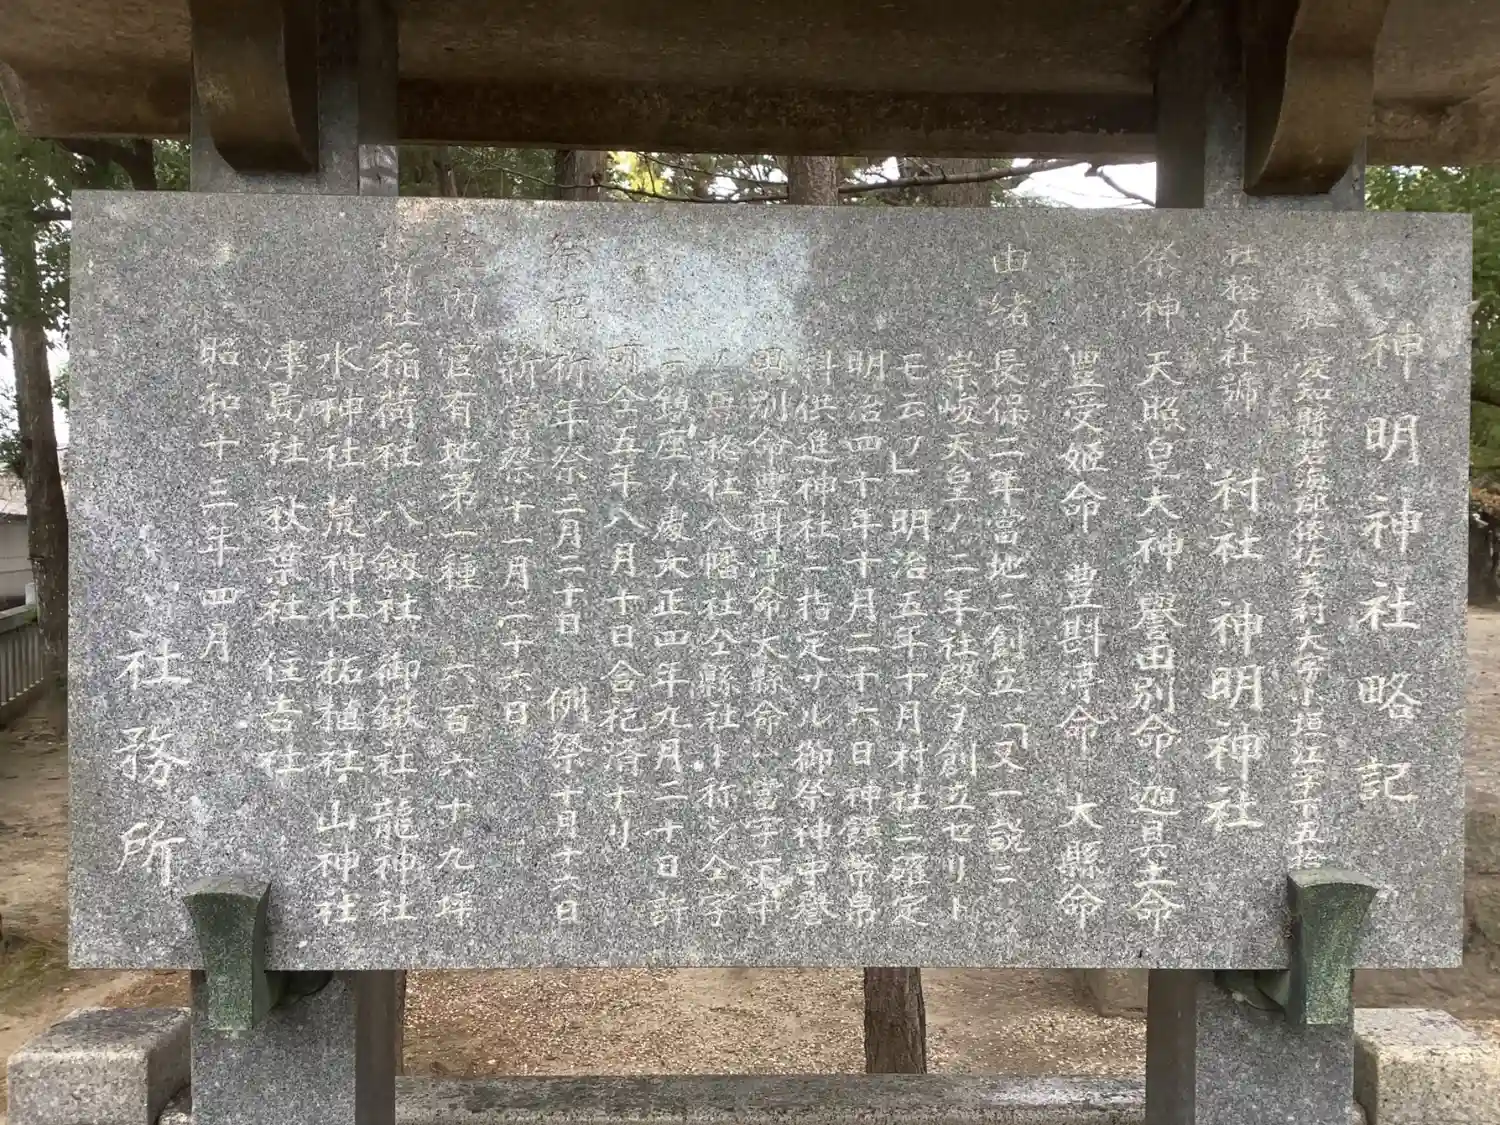 神明神社略記
愛知縣碧海郡依佐美村大字小垣江字下五拾
社格及社號 村社 神明神社
祭神 天照皇大神 譽田別命 迦具土命
豊受姫命 豊斟渟命 大縣命
由緒 長保二年當地ニ創立「又一説ニ
崇峻天皇ノ二年社殿ヲ創立セリト
モ云フ」明治五年十月村社ニ確定
明治四十年十月二十六日神饌幣帛
料供進神社ニ指定サル御祭神中譽
田別命豊斟渟命大縣命ハ當字下
格社八幡社仝縣社ト称シ仝字
ニ鎮座ノ處大正四年九月二十日許
可仝五年八月十日合祀済ナリ
祭祀 祈年祭二月二十日 例祭十月十六日
新嘗祭十一月二十六日
境内 官有地第一種 六百六十九坪
神社 稲荷社 八劔社 御鍬社 龍神社
水神社 荒神社 祐植社 山神社
津島社 秋葉社 住吉社
昭和十三年四月
社務所